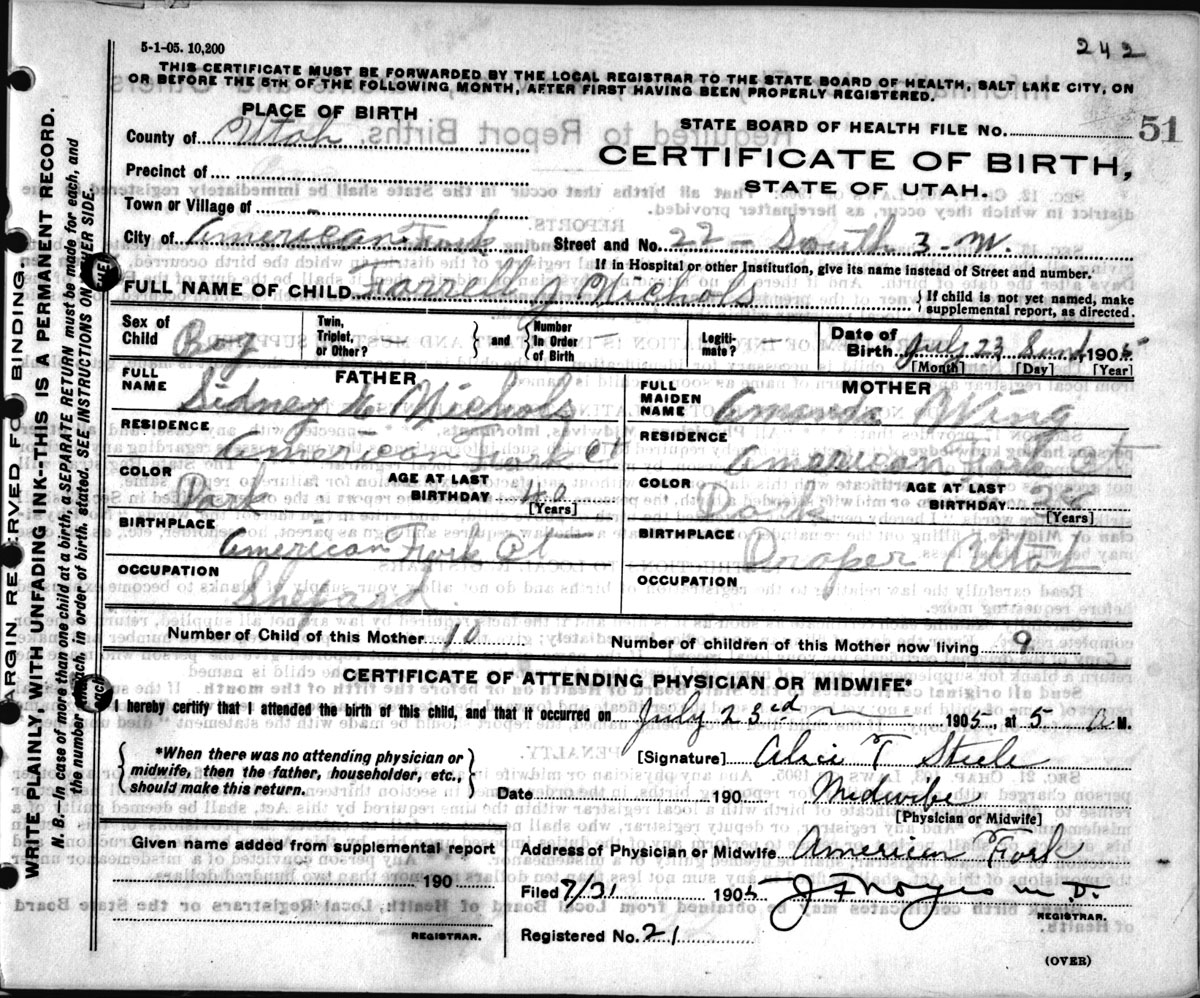 5-1-05. 10,200
242
THIS CERTIFICATE MUST BE FORWARDED BY THE LOCAL REGISTRAR TO THE STATE BOARD OF HEALTH, SALT LAKE CITY, ON
OR BEFORE THE 5TH OF THE FOLLOWING MONTH, AFTER FIRST HAVING BEEN PROPERLY REGISTERED.
PLACE OF BIRTH
STATE BOARD OF HEALTH FILE NO. 51
County of Utah
CERTIFICATE OF BIRTH,
STATE OF UTAH.
Precinct of
Town or Village of
City of American Fork Street and No. 22 - South 3-W.
If in Hospital or other Institution, give its name instead of Street and number.
FULL NAME OF CHILD Farrell J Nichols } If child is not yet named, make supplemental report, as directed.
Sex of Child Boy Twin, Triplet, or Other? } and { Number in Order of Birth Legiti- mate? Date of Birth July 23 1905
[Month] [Day] [Year]
FATHER
FULL NAME Sidney Nichols
RESIDENCE American Fork Ut
COLOR Dark AGE AT LAST BIRTHDAY 40
[Years]
BIRTHPLACE American Fork Ut
OCCUPATION Shepard
MOTHER
FULL MAIDEN NAME Amanda Wing
RESIDENCE American Fork Ut
COLOR Dark AGE AT LAST BIRTHDAY 38
[Years]
BIRTHPLACE Draper Utah
OCCUPATION
Number of Child of this Mother 10 Number of children of this Mother now living 9
CERTIFICATE OF ATTENDING PHYSICIAN OR MIDWIFE*
I hereby certify that I attended the birth of this child, and that it occurred on July 23rd 1905, at 5 a M.
{ *When there was no attending physician or
midwife, then the father, householder, etc.,
should make this return. }
[Signature] Alice T Steele
Date 190 Midwife
[Physician or Midwife]
Given name added from supplemental report
190
REGISTRAR.
Address of Physician or Midwife American Fork
Filed 7/31 1905 J F Noyes M.D.
REGISTRAR.
Registered No. 21
(OVER)
MARGIN RESERVED FOR BINDING.
WRITE PLAINLY WITH UNFADING INK--THIS IS A PERMANENT RECORD.
N. B. In case of more than one child at a birth, a SEPARATE RETURN must be made for each, and
the number of each, in order of birth, stated. SEE INSTRUCTIONS ON OTHER SIDE.